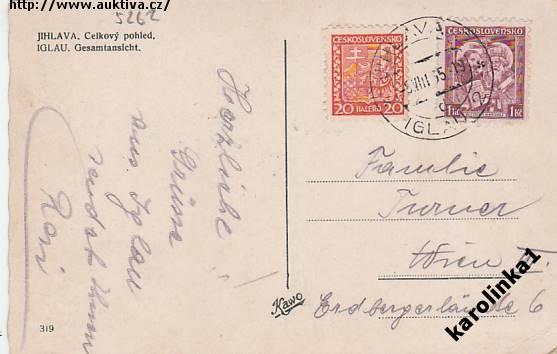 www.auktiva.cz /
5262
JIHLAVA, Celkový pohled,
IGLAU. Gesamtansicht.
ČESKOSLOVENSKO
20 HALÉŘŮ 20
ČESKOSLOVENSKO
1 Kč 1 Kč
IGLAU
Herzliche
Grüsse
aus Iglau
sendet Ihnen
Familie
Turner
Wien
Erdbergerlände 6
Kawo
319
karolinka1